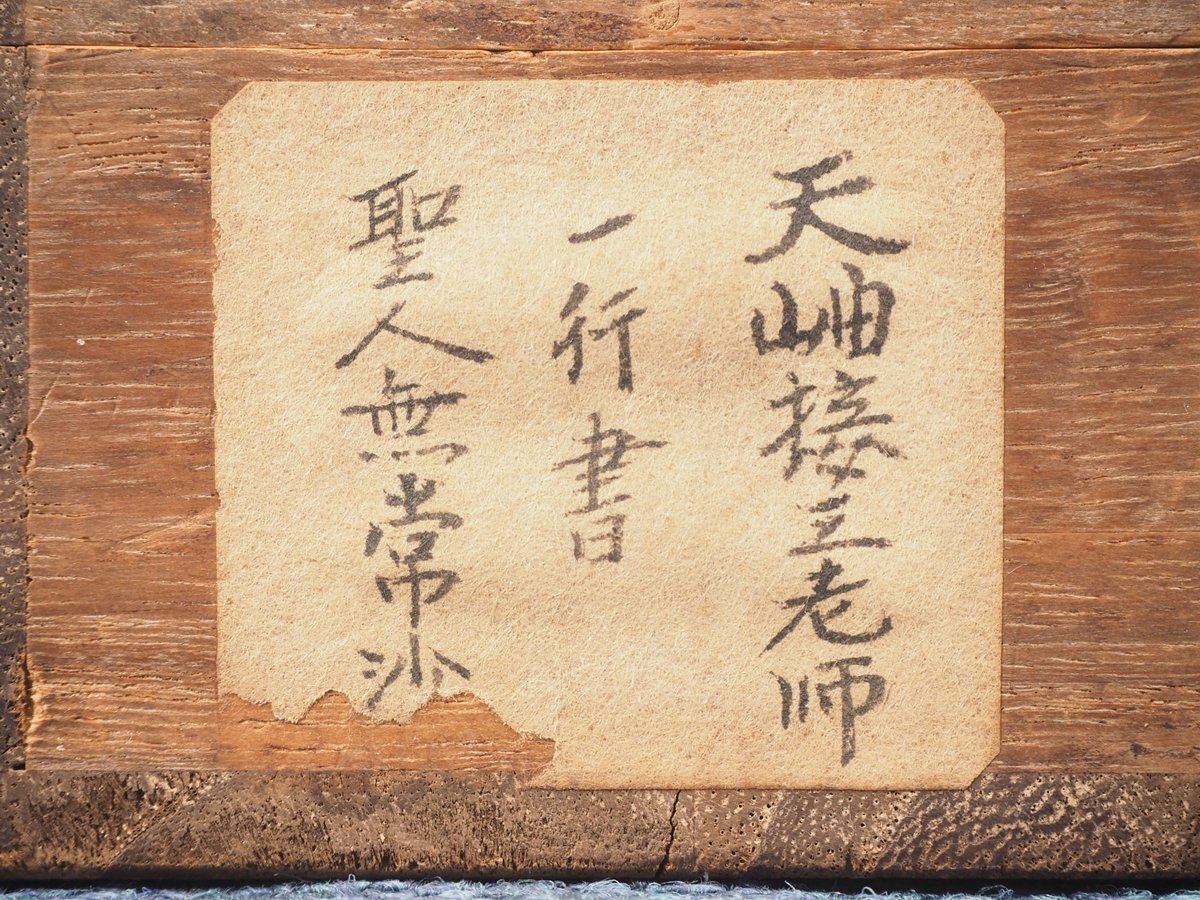 天岫接三老师
一行書
聖人無常